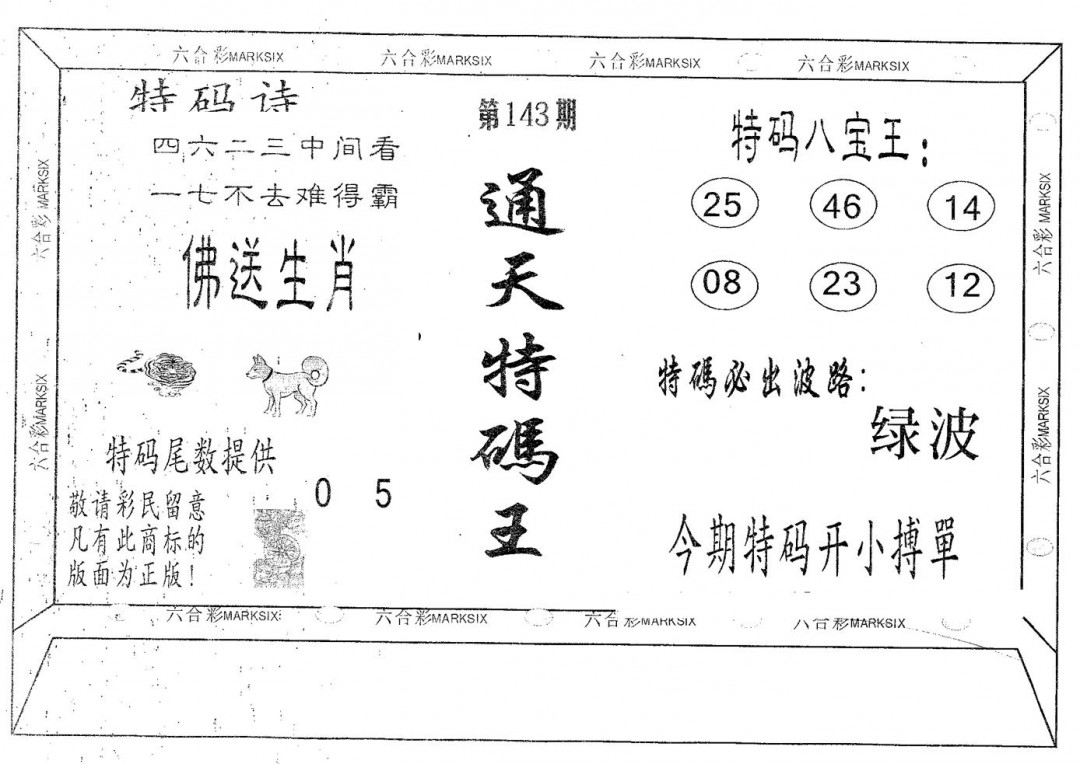 六合彩MARKSIX 六合彩MARKSIX 六合彩MARKSIX 六合彩MARKSIX
特码诗
四六二三中间看
一七不去难得霸
佛送生肖
特码尾数提供
0 5
敬请彩民留意
凡有此商标的
版面为正版!
第143期
通天特碼王
特码八宝王:
25 46 14
08 23 12
特碼必出波路:
绿波
今期特码开小搏單
六合彩MARKSIX
六合彩MARKSIX
六合彩MARKSIX
六合彩MARKSIX
六合彩MARKSIX: 六合彩MARKSIX 六合彩MARKSIX 六合彩MARKSIX